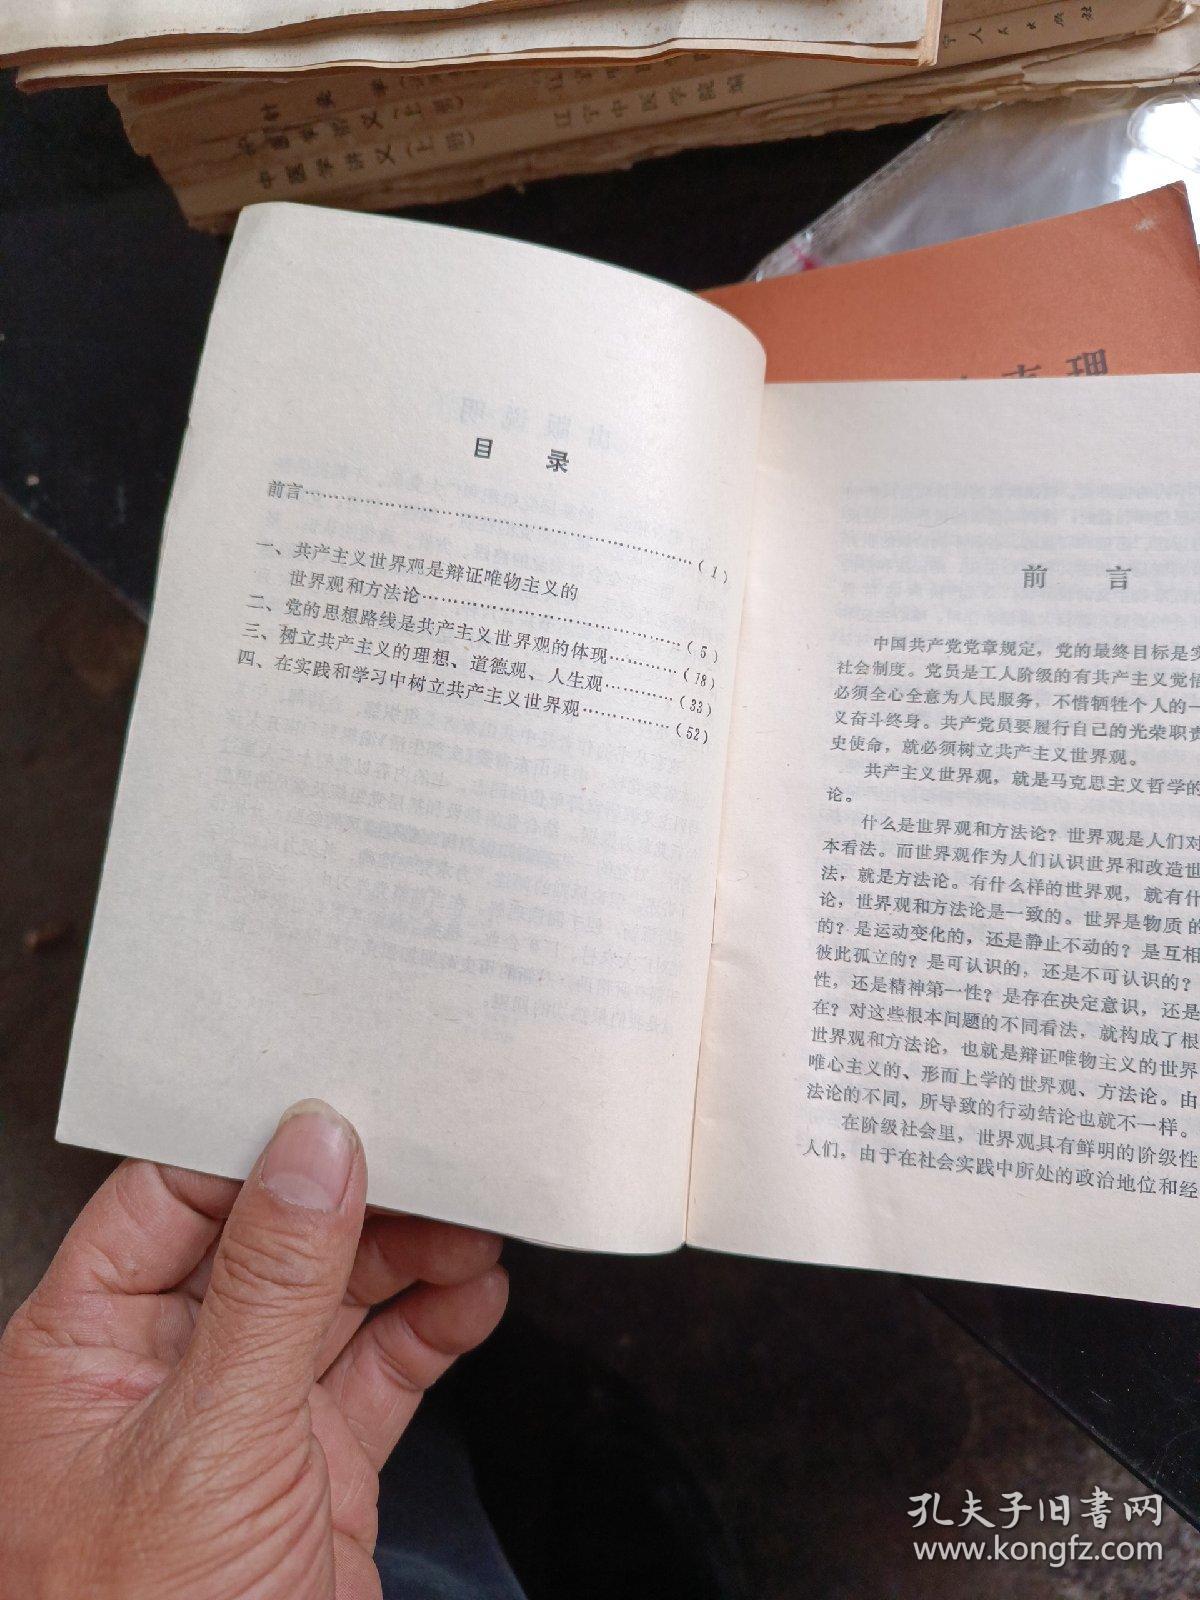 中医学讲义（上册）
辽宁中医学院编
宁人民出版社
目 录
前言……………………………………（1）
一、共产主义世界观是辩证唯物主义的
世界观和方法论……………………………（5）
二、党的思想路线是共产主义世界观的体现…………（18）
三、树立共产主义的理想、道德观、人生观…………（33）
四、在实践和学习中树立共产主义世界观……………（52）
前 言
中国共产党党章规定，党的最终目标是实
社会制度。党员是工人阶级的有共产主义觉悟
必须全心全意为人民服务，不惜牺牲个人的一
义奋斗终身。共产党员要履行自己的光荣职责
史使命，就必须树立共产主义世界观。
共产主义世界观，就是马克思主义哲学的
论。
什么是世界观和方法论？世界观是人们对
本看法。而世界观作为人们认识世界和改造世
法，就是方法论。有什么样的世界观，就有什
论，世界观和方法论是一致的。世界是物质的
的？是运动变化的，还是静止不动的？是互相
彼此孤立的？是可认识的，还是不可认识的？
性，还是精神第一性？是存在决定意识，还是
在？对这些根本问题的不同看法，就构成了根
世界观和方法论，也就是辩证唯物主义的世界
唯心主义的、形而上学的世界观、方法论。由
法论的不同，所导致的行动结论也就不一样。
在阶级社会里，世界观具有鲜明的阶级性
人们，由于在社会实践中所处的政治地位和经
孔夫子旧书网
www.kongfz.com